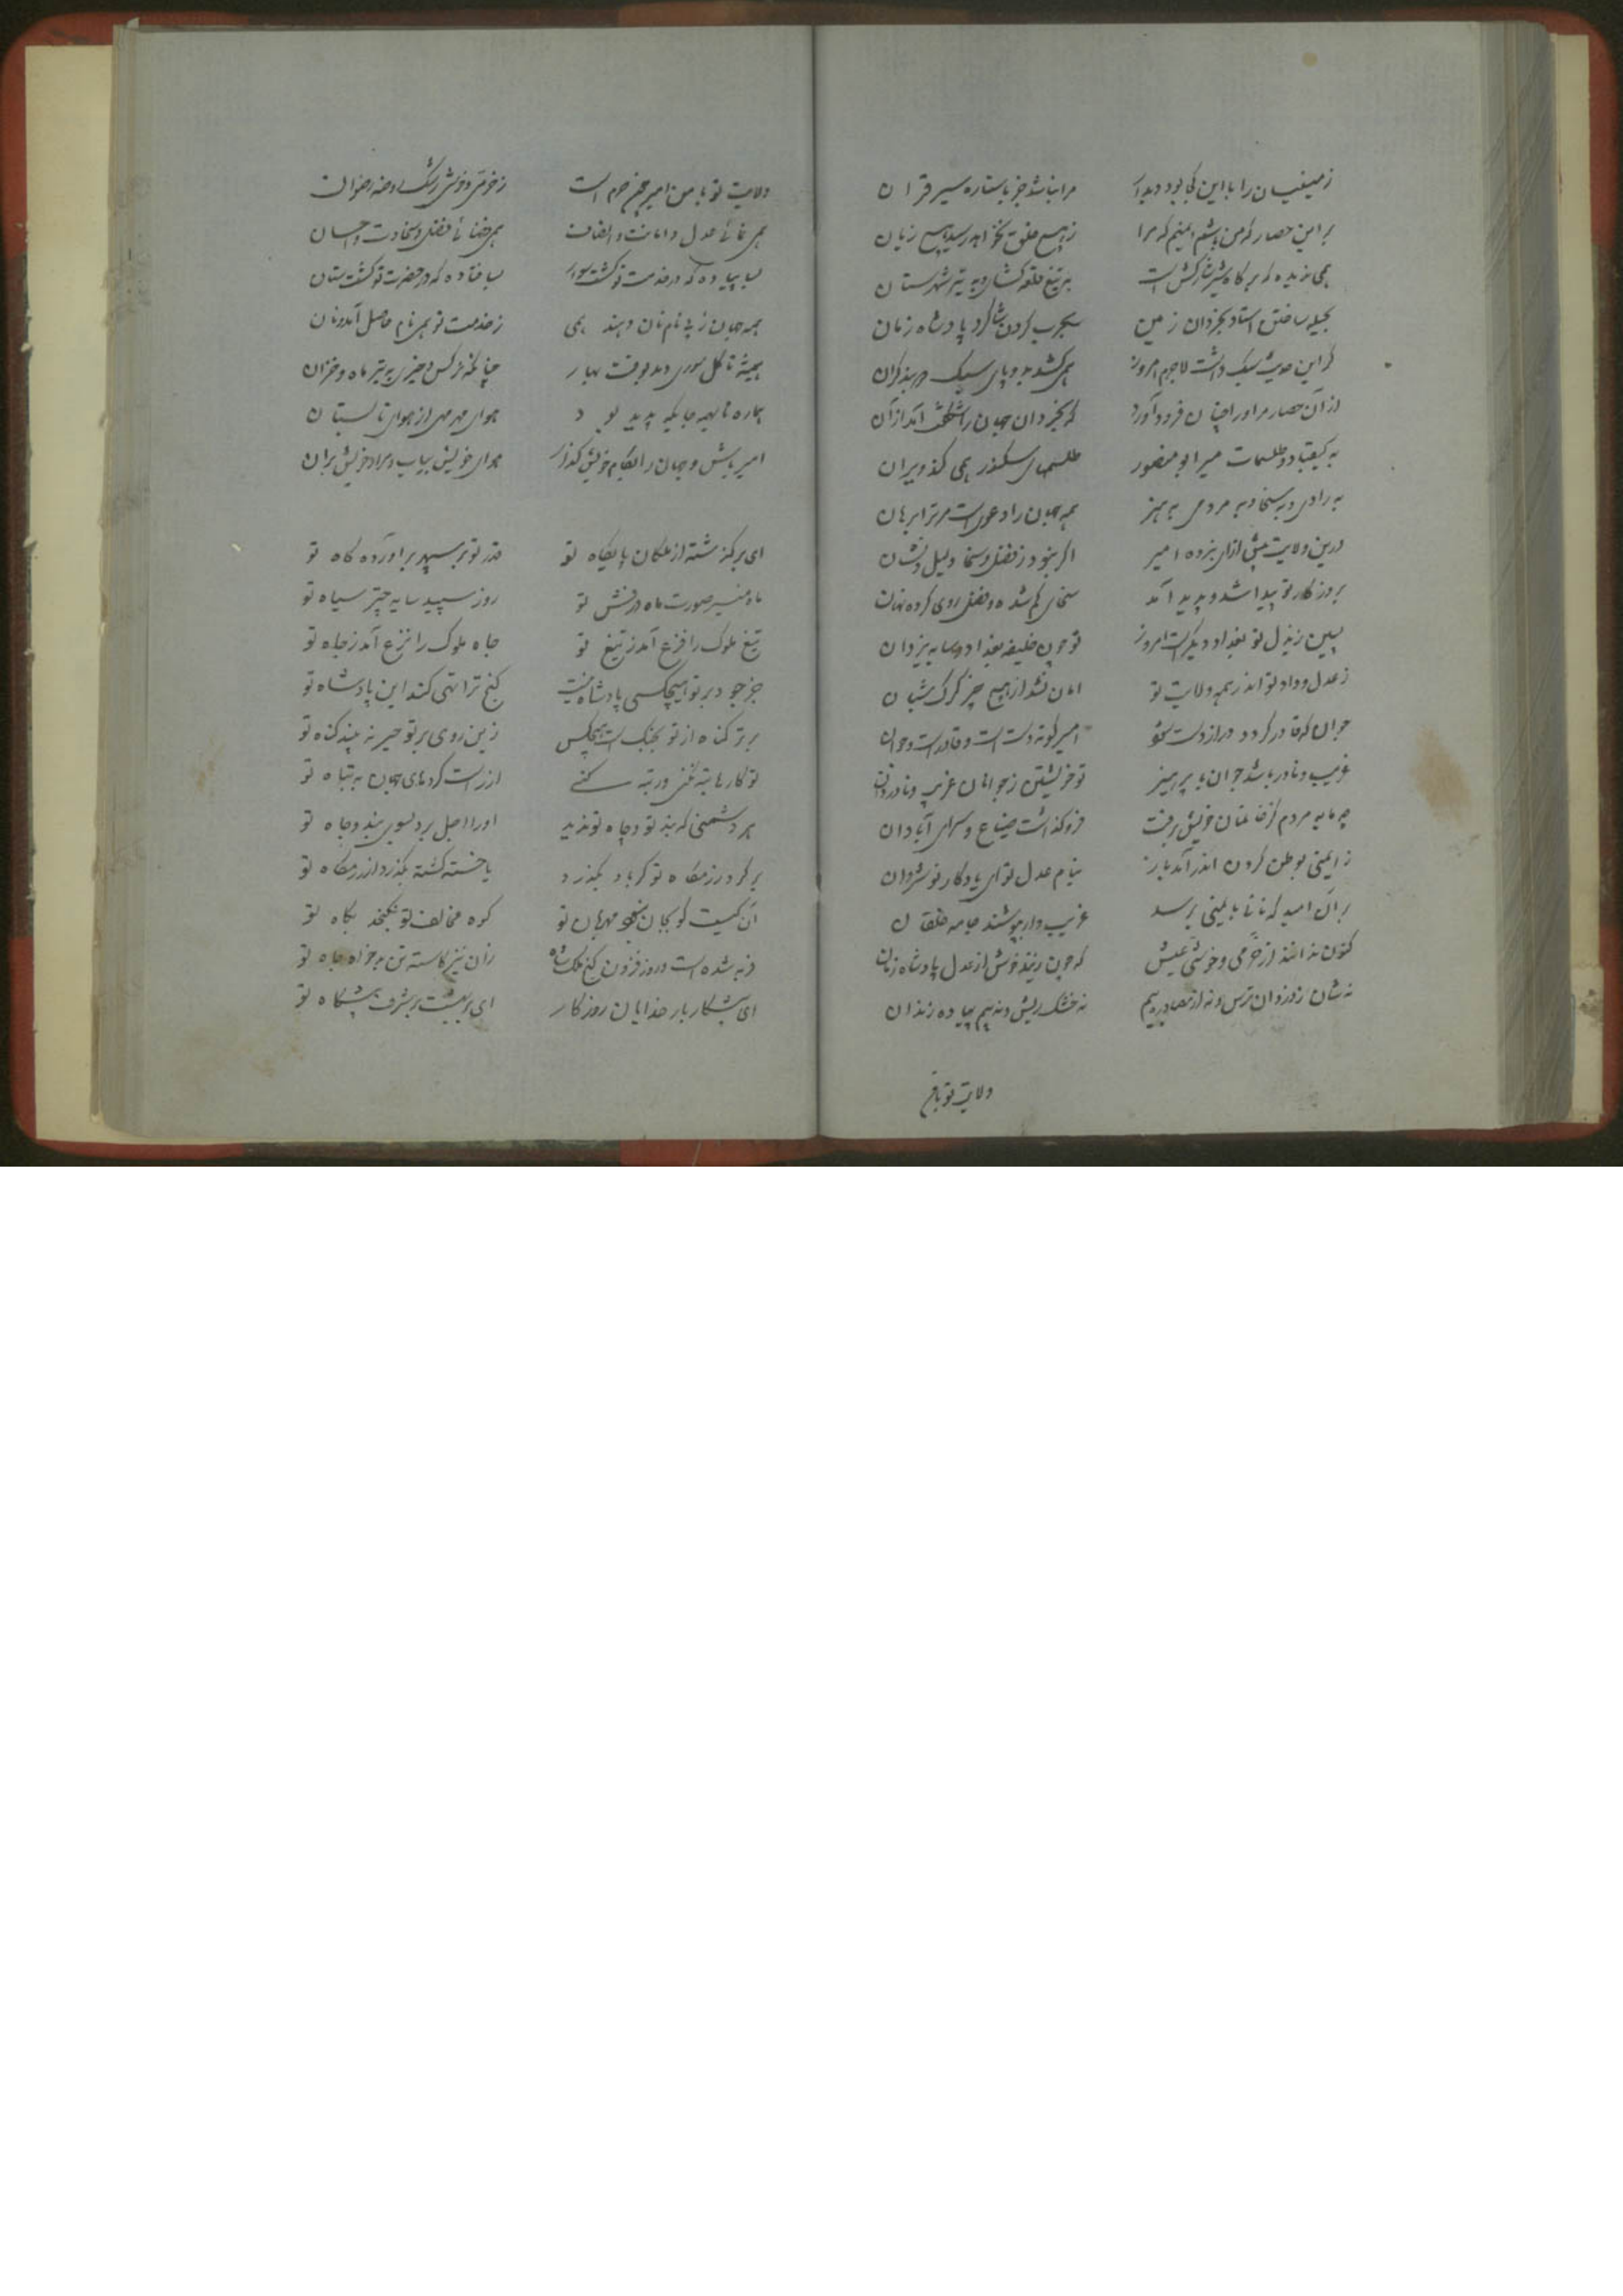 زمینیان را با این کجا بود دیدار مرا نباشد جز با ستاره سیر قران
بر این حصار که من باشم ایمنم که مرا ز هیچ خلق نخواهد رسید هیچ زیان
همی ندیده که بر گاه شیر است به تیغ قلعه گشای و به تیر شهرستان
بحیله ساختن استاد بخردان زمین بحرب کردن شاگرد پادشاه زمان
گر این حدیث سبک داشت لاجرم امروز همی کشد بدو پای سبک دو بند گران
از آن حصار مر او را چنان فرود آورد که بخردان جهان را شگفت آمد از آن
به کیقباد و طلسمات میر ابو منصور طلسمهای سکندر همی کند ویران
به رادی و به سخا و به مردمی به هنر همه جهان را دعویست مر ترا برهان
درین ولایت پیش از این نزده امیر اگر نبود ز فضل و سخا دلیل و نشان
بروزگار تو پیدا شد و پدید آمد سخای گم شده و فضل روی کرده نهان
ببین ز بذل تو بغداد دیگر است امروز تو چون خلیفه بغداد و سایه یزدان
ز عدل و داد تو اندر همه ولایت تو امان نشد از هیچ چیز گرگ شبان
جوان که قادر گردد دراز دست شود امیر کوته دست است و قادر است و جوان
غریب و نادر باشد جوان با پرهیز تو خویشتن ز جوانان غریب و نادر دان
چه مایه مردم کز خانمان خویش برفت فرو گذاشت ضیاع و سرای آبادان
ز ایمنی بوطن کردن اندر آمد باز بنام عدل تو ای یادگار نوشروان
بر آن امید که تا نانی بایمنی برسد غریب وار بپوشند جامه خلقان
کنون ندانند از خرمی و خوشی عیش که چون زیند خوش از عدل پادشاه زمان
نه شان ز دزدان ترس و نه از مصادره بیم نه خشک ریش و نه بیم پیاده زندان
ولایت تو باغ
ولایت تو با من امیر چنین خرم است ز خرمی و خوشی رشک روضه رضوان
همی نمائی عدل و امانت و انصاف همی فضائی فضل و سخاوت و احسان
بسا پیاده که در خدمت تو گشت سوار بسا فتاده که در حضرت تو گشت ستان
همه جهان ز پی نام نان دهند همی ز خدمت تو همی نام حاصل آمد و نان
همیشه تا گل سوری دمد بوقت بهار چنانکه نرگس و خیری به تیر ماه و خزان
هماره تا به همه جایگه پدید بود هوای مهر مهی از هوای تابستان
امیر باش و جهان را بکام خویش گذار هوای خویش بیاب و مراد خویش بران
ای بر گذشته از ملکان پایگاه تو قدر تو بر سپهر بر آورده گاه تو
ماه منیر صورت ماه درفش تو روز سپید سایه چتر سیاه تو
تیغ ملوک را فزع آمد ز تیغ تو جاه ملوک را نزع آمد ز جاه تو
جز جود بر تو هیچکسی پادشاه نیست گنج ترا تهی کند این پادشاه تو
برتر گناه از تو بجنگ است هیچکس زین روی بر تو خیره نه بیند گناه تو
تو کارها تبه نکنی ور تبه کنی از راست کردهای جهان به تباه تو
هر دشمنی که بند تو و چاه تو ندید او را اجل برد بسوی بند و چاه تو
بر گرد رزمگاه تو گر باد بگذرد یا خسته گشته بگذرد از رزمگاه تو
آن کیست کو بجان نبود مهربان تو کوه مخالف تو نکنجد بکاه تو
فربه شده است و روز فزون گنج ملک شاه زان نیز کاسته تن بدخواه جاه تو
ای پیشکار بار خدایان روزگار ای برنشست بر شرف پیشگاه تو